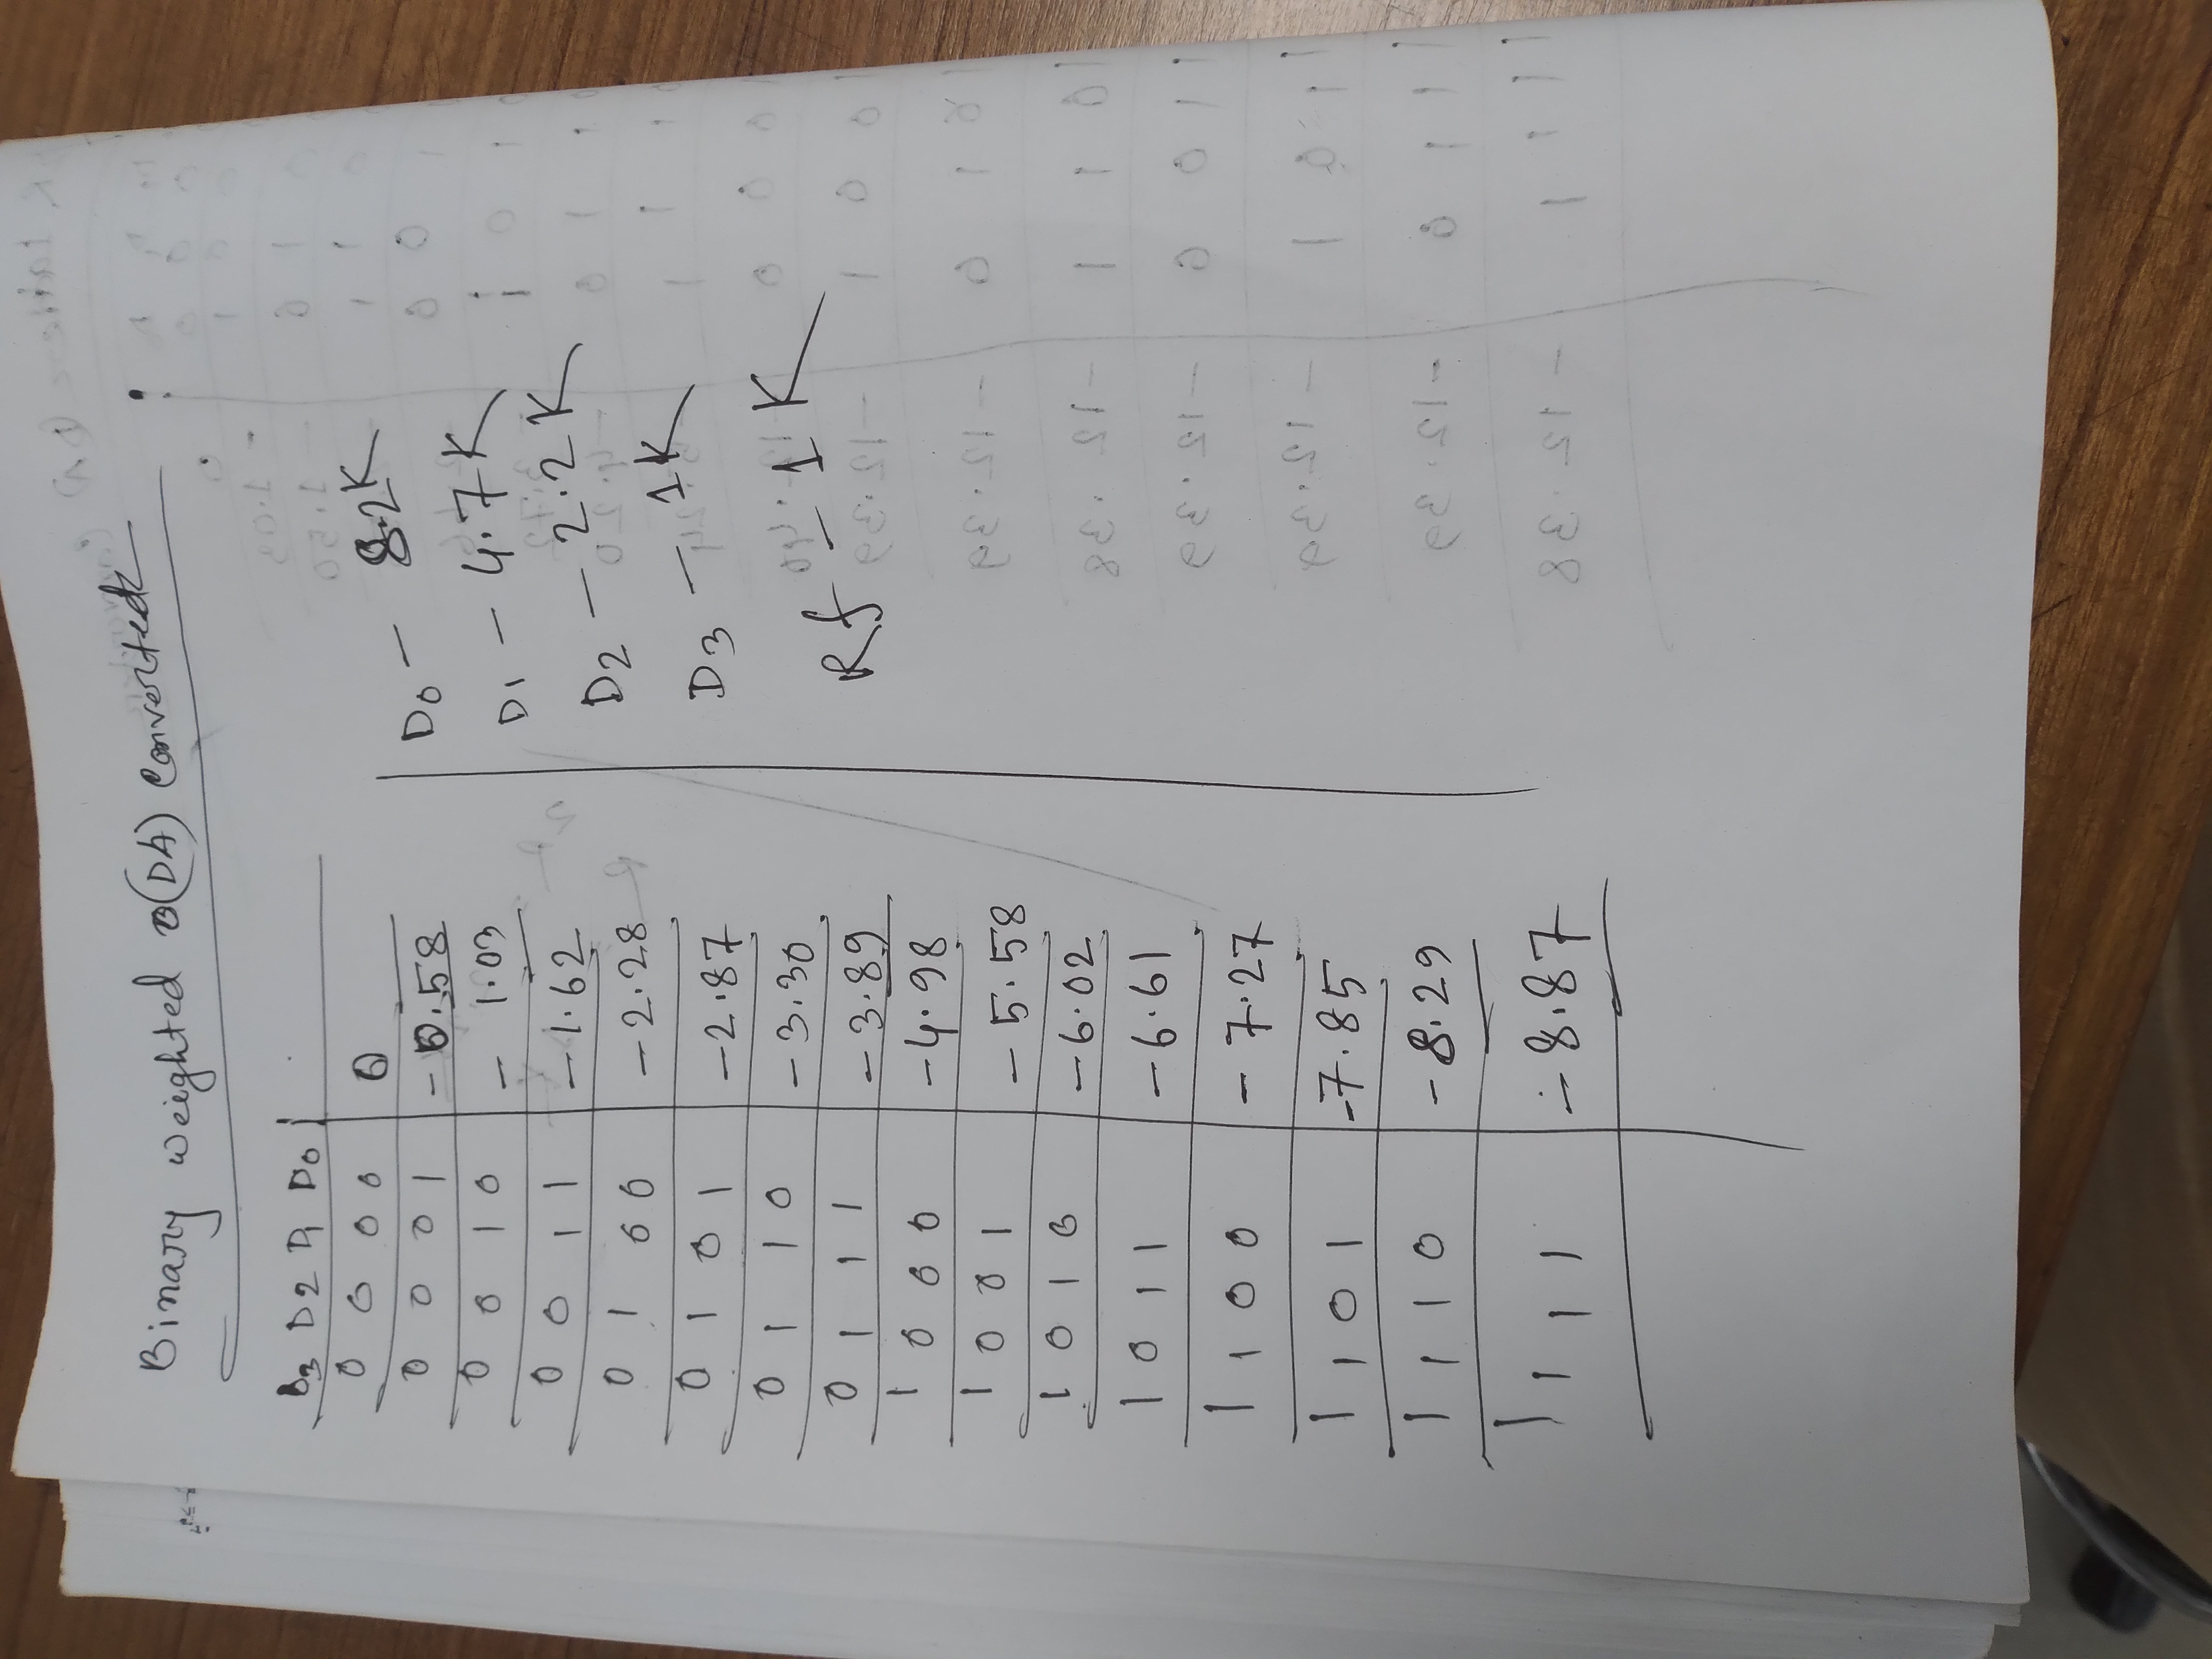 Binary weighted (DA) Converted
D3 D2 D1 D0
0 0 0 0 0
0 0 0 1 -0.58
0 0 1 0 - 1.03
0 0 1 1 -1.62
0 1 0 0 -2.28
0 1 0 1 -2.87
0 1 1 0 -3.30
0 1 1 1 -3.89
1 0 0 0 -4.98
1 0 0 1 -5.58
1 0 1 0 -6.02
1 0 1 1 -6.61
1 1 0 0 -7.27
1 1 0 1 -7.85
1 1 1 0 -8.29
1 1 1 1 -8.87
D0 - 8.2K
D1 - 4.7K
D2 - 2.2K
D3 - 1K
Rf - 1K